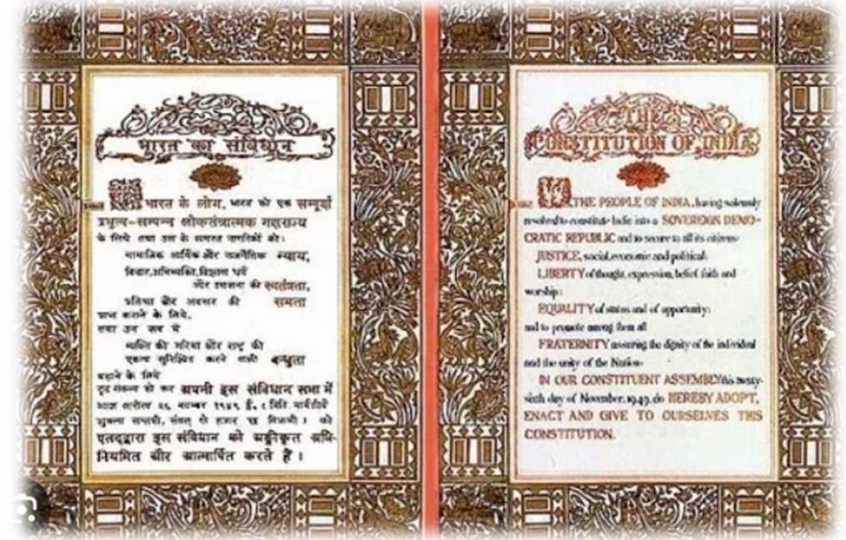 भारत का संविधान
हम भारत के लोग, भारत को एक सम्पूर्ण
प्रभुत्व-सम्पन्न लोकतंत्रात्मक गणराज्य
के लिये तथा उस के समस्त नागरिकों को:
सामाजिक आर्थिक और राजनैतिक न्याय,
विचार, अभिव्यक्ति, विश्वास धर्म
और उपासना की स्वतंत्रता,
प्रतिष्ठा और अवसर की समता
प्राप्त कराने के लिये,
तथा उन सब में
व्यक्ति की गरिमा और राष्ट्र की
एकता सुनिश्चित करने वाली बन्धुता
बढ़ाने के लिये
दृढ़ संकल्प हो कर अपनी इस संविधान सभा में
आज तारीख २६ नवम्बर १९४९ ई,
को
एतद्द्वारा इस संविधान को अङ्गीकृत अधि-
नियमित और आत्मार्पित करते हैं।
THE
CONSTITUTION OF INDIA
WE, THE PEOPLE OF INDIA, having solemnly
resolved to constitute India into a SOVEREIGN DEMO-
CRATIC REPUBLIC and to secure to all its citizens:
JUSTICE, social, economic and political;
LIBERTY of thought, expression, belief, faith and
worship;
EQUALITY of status and of opportunity;
and to promote among them all
FRATERNITY assuring the dignity of the individual
and the unity of the Nation;
IN OUR CONSTITUENT ASSEMBLY this twenty-
sixth day of November, 1949, do HEREBY ADOPT,
ENACT AND GIVE TO OURSELVES THIS
CONSTITUTION.